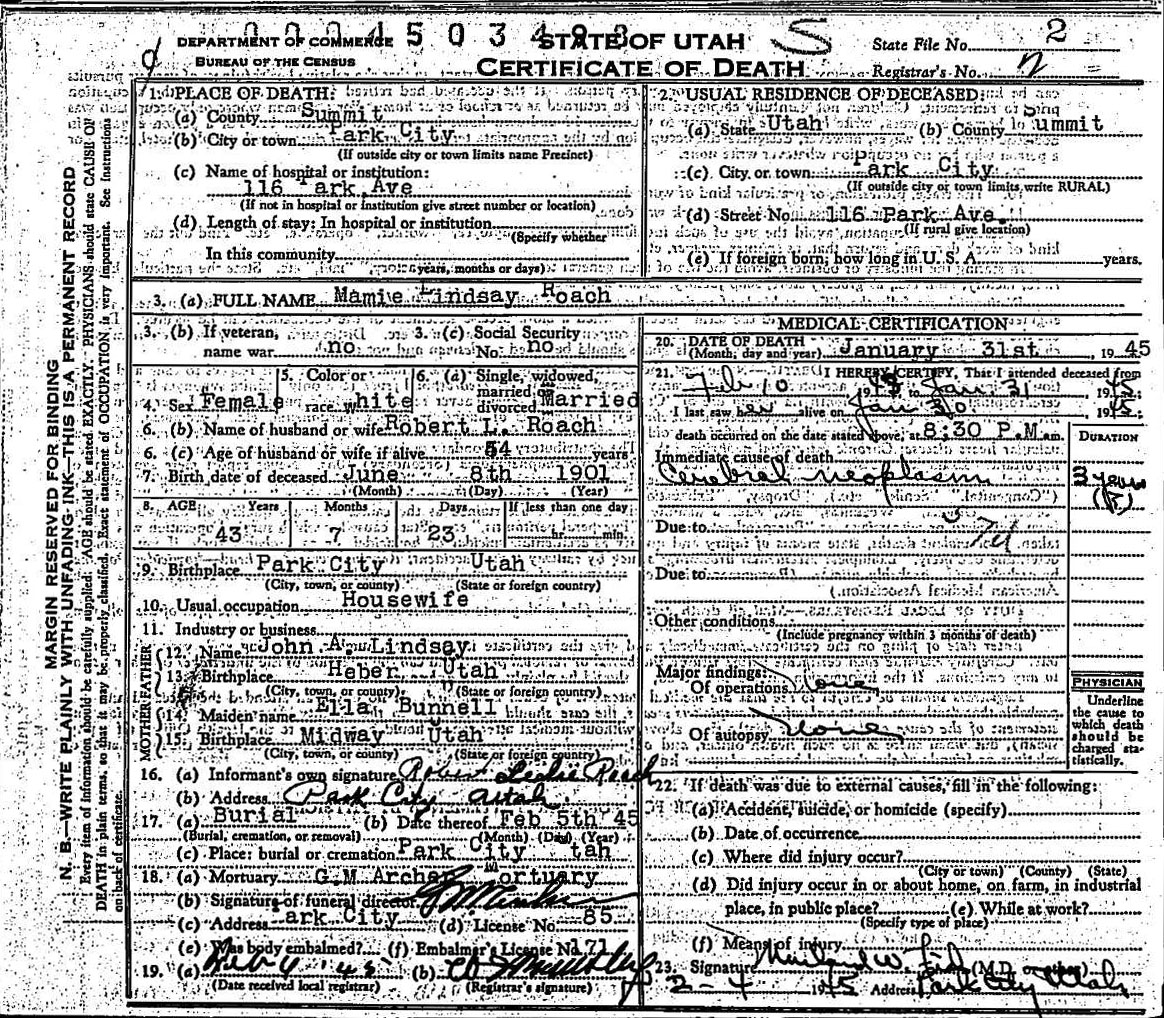 DEPARTMENT OF COMMERCE
BUREAU OF THE CENSUS
STATE OF UTAH
CERTIFICATE OF DEATH
S
State File No. 2
Registrar's No. 2
MARGIN RESERVED FOR BINDING
N. B.—WRITE PLAINLY WITH UNFADING INK—THIS IS A PERMANENT RECORD
Every item of information should be carefully supplied. AGE should be stated EXACTLY. PHYSICIANS should state CAUSE OF
DEATH in plain terms, so that it may be properly classified. Exact statement of OCCUPATION is very important. See Instructions
on back of certificate.
1. PLACE OF DEATH:
(a) County Summit
(b) City or town Park City
(If outside city or town limits name Precinct)
(c) Name of hospital or institution:
116 Park Ave
(If not in hospital or institution give street number or location)
(d) Length of stay: In hospital or institution
(Specify whether
In this community
years, months or days)
2. USUAL RESIDENCE OF DECEASED:
(a) State Utah (b) County Summit
(c) City or town Park City
(If outside city or town limits write RURAL)
(d) Street No. 116 Park Ave.
(If rural give location)
(e) If foreign born, how long in U. S. A. years.
3. (a) FULL NAME Mamie Lindsay Roach
3. (b) If veteran, name war no
3. (c) Social Security No. no
4. Sex Female
5. Color or race white
6. (a) Single, widowed, married or divorced Married
6. (b) Name of husband or wife Robert L. Roach
6. (c) Age of husband or wife if alive 54 years
7. Birth date of deceased June 8th 1901
(Month) (Day) (Year)
8. AGE Years Months Days If less than one day
43 7 23 hr. min.
9. Birthplace Park City Utah
(City, town, or county) (State or foreign country)
10. Usual occupation Housewife
11. Industry or business
FATHER
12. Name John A. Lindsay
13. Birthplace Heber Utah
(City, town, or county) (State or foreign country)
MOTHER
14. Maiden name Ella Bunnell
15. Birthplace Midway Utah
(City, town, or county) (State or foreign country)
16. (a) Informant's own signature Robert Leslie Roach
(b) Address Park City Utah
17. (a) Burial (b) Date thereof Feb 5th 45
(Burial, cremation, or removal) (Month) (Day) (Year)
(c) Place: burial or cremation Park City tah
18. (a) Mortuary G.M Archer Mortuary
(b) Signature of funeral director
(c) Address ark City (d) License No. 85
(e) Was body embalmed? (f) Embalmer's License No. 71
19. (a) Feb 4 '45 (b)
(Date received local registrar) (Registrar's signature)
MEDICAL CERTIFICATION
20. DATE OF DEATH
(Month, day and year) January 31st, 1945
21. I HEREBY CERTIFY, That I attended deceased from
Feb 10 1943 to Jan 31, 1945
I last saw her alive on Jan 30, 1945
death occurred on the date stated above, at 8:30 P.M. m.
DURATION
Immediate cause of death
Cerebral neoplasm 3 years
Due to
Due to
Other conditions
(Include pregnancy within 3 months of death)
Major findings:
Of operations None
Of autopsy None
PHYSICIAN
Underline
the cause to
which death
should be
charged sta-
tistically.
22. If death was due to external causes, fill in the following:
(a) Accident, suicide, or homicide (specify)
(b) Date of occurrence
(c) Where did injury occur?
(City or town) (County) (State)
(d) Did injury occur in or about home, on farm, in industrial
place, in public place? (e) While at work?
(Specify type of place)
(f) Means of injury
23. Signature (M.D. or other)
2-4 1945 Address Park City Utah